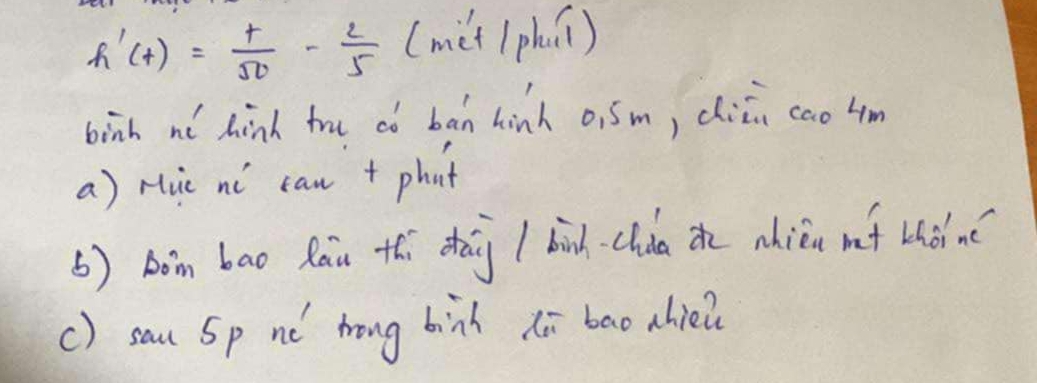 h'(t) = t/50 - 2/5 (mét / phút)
bình nc hình trụ có bán kính 0,5m, chiều cao 4m
a) Mực nc sau t phút
b) Bơm bao lâu thì đầy / bình chứa đc nhiêu mét khối nc
c) sau 5p nc trong bình là bao nhiêu